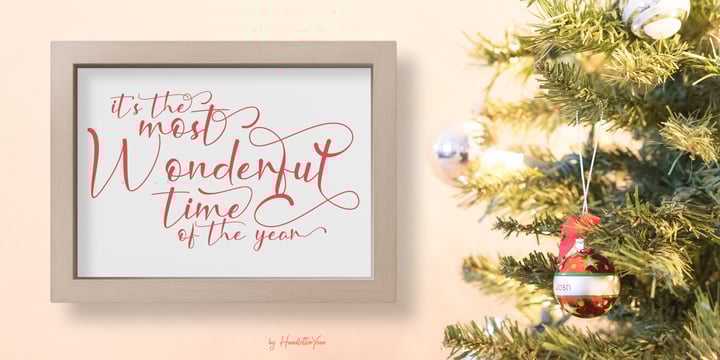 it's the
most
Wonderful
time
of the year
by HandletterYean
Josh